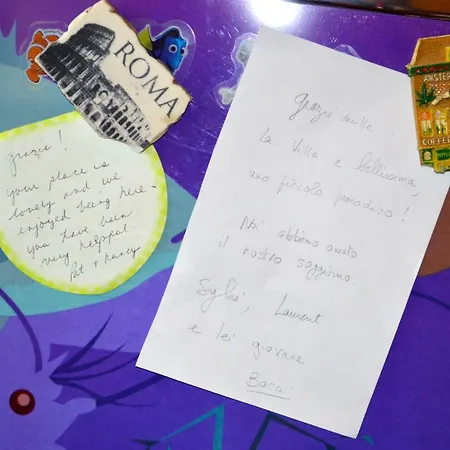 ROMA
grazie!
your place is
lovely and we
enjoyed being here -
you have been
very helpful.
Pat + Nancy
Grazie mille
La Villa e bellissima,
uno piccolo paradiso!
Noi abbiamo
il nostro soggiorno.
Sylvie, Laurent
e lei giovane
Baca
AMSTER
COFFEE